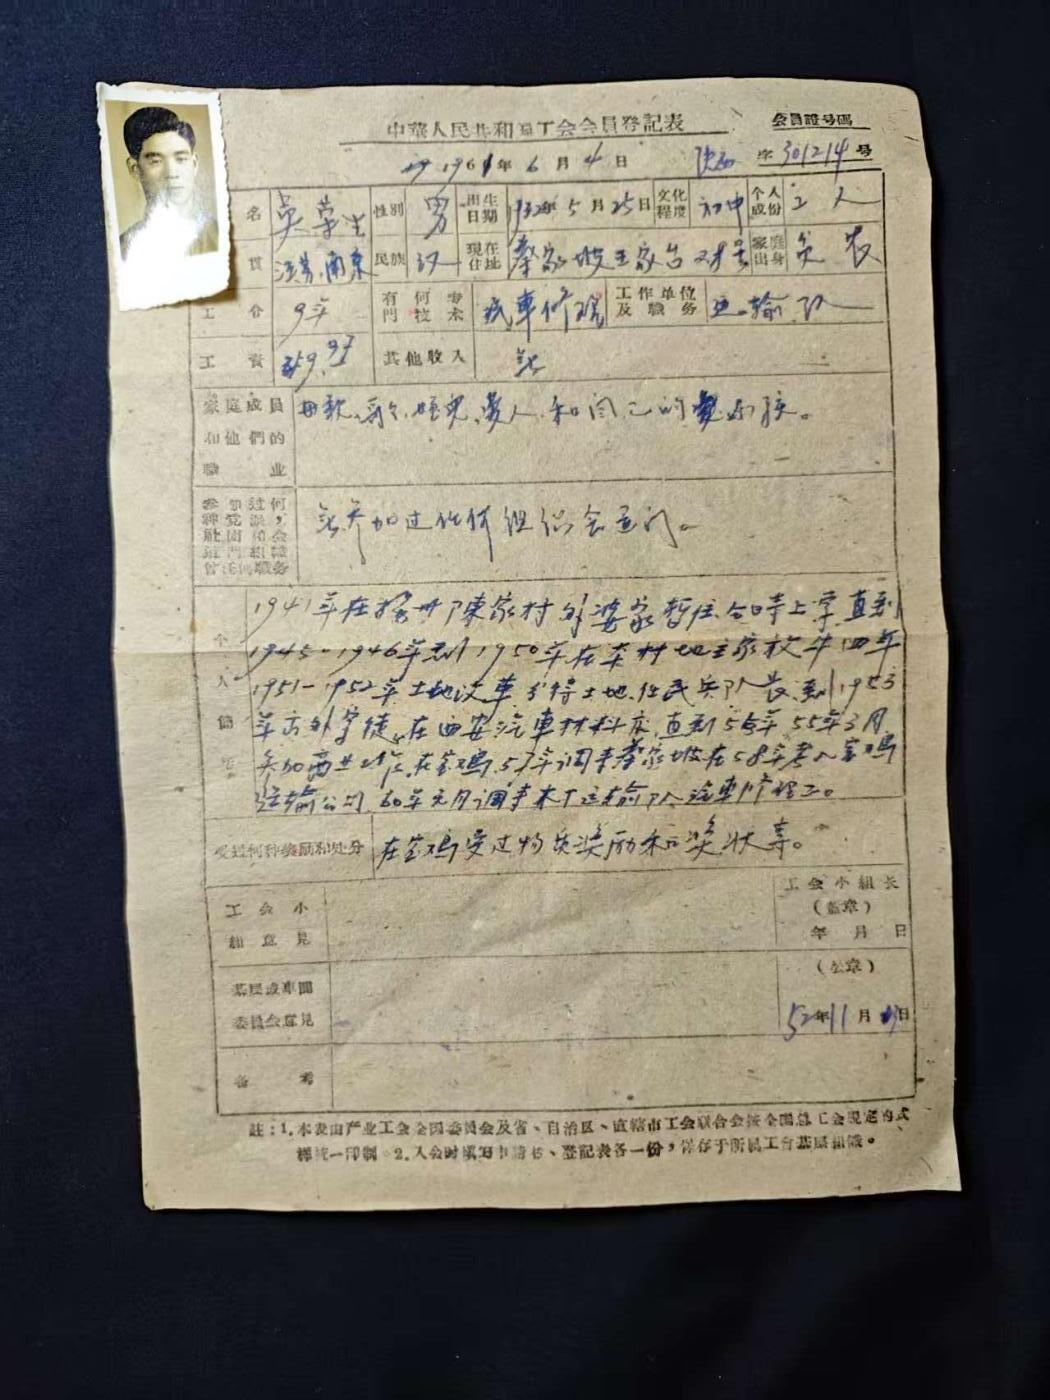 中華人民共和国工会会員登記表
会員證号碼
1961年6月4日
字301214号
名 吴荣生 性别 男 出生日期 1932年5月25日 文化程度 初中 个人成份 工人
貫 江苏南京 民族 汉 現在住址 蔡家坡王家台 家庭出身 贫农
工令 9年 有何专門技术 汽車修理 工作单位及职务 运输队
工資 其他收入 无
家庭成員 母亲、哥々、姪兒、爱人、和自己的小孩。
和他們的
職业
参加过何种党派,社团和会道門組織曾任何職务
无参加过任何组织会道门。
1941年在 陳家村外婆家暂住 上学 直到
个 1945-1946年到1950年在本村地主家放牛四年
人 1951-1952年土地改革分得土地,任民兵队長,到1953
簡 年去外学徒,在西安汽車材料库,直到 55年3月
参加商业工作,在宝鸡,57年调来蔡家坡在58年考入宝鸡
运输公司,60年元月调来本厂运输队汽車修理工。
受过何种奖励和处分 在宝鸡受过物质奖励和奖状等。
工会小組意見
工会小組长
(蓋章)
年 月 日
基层或車間委員会意見
(公章)
52年11月 日
备考
註:1.本表由产业工会全国委員会及省、自治区、直轄市工会联合会按全国总工会規定的式
样統一印制。2.入会时填写申請书、登記表各一份,保存于所屬工会基层組織。